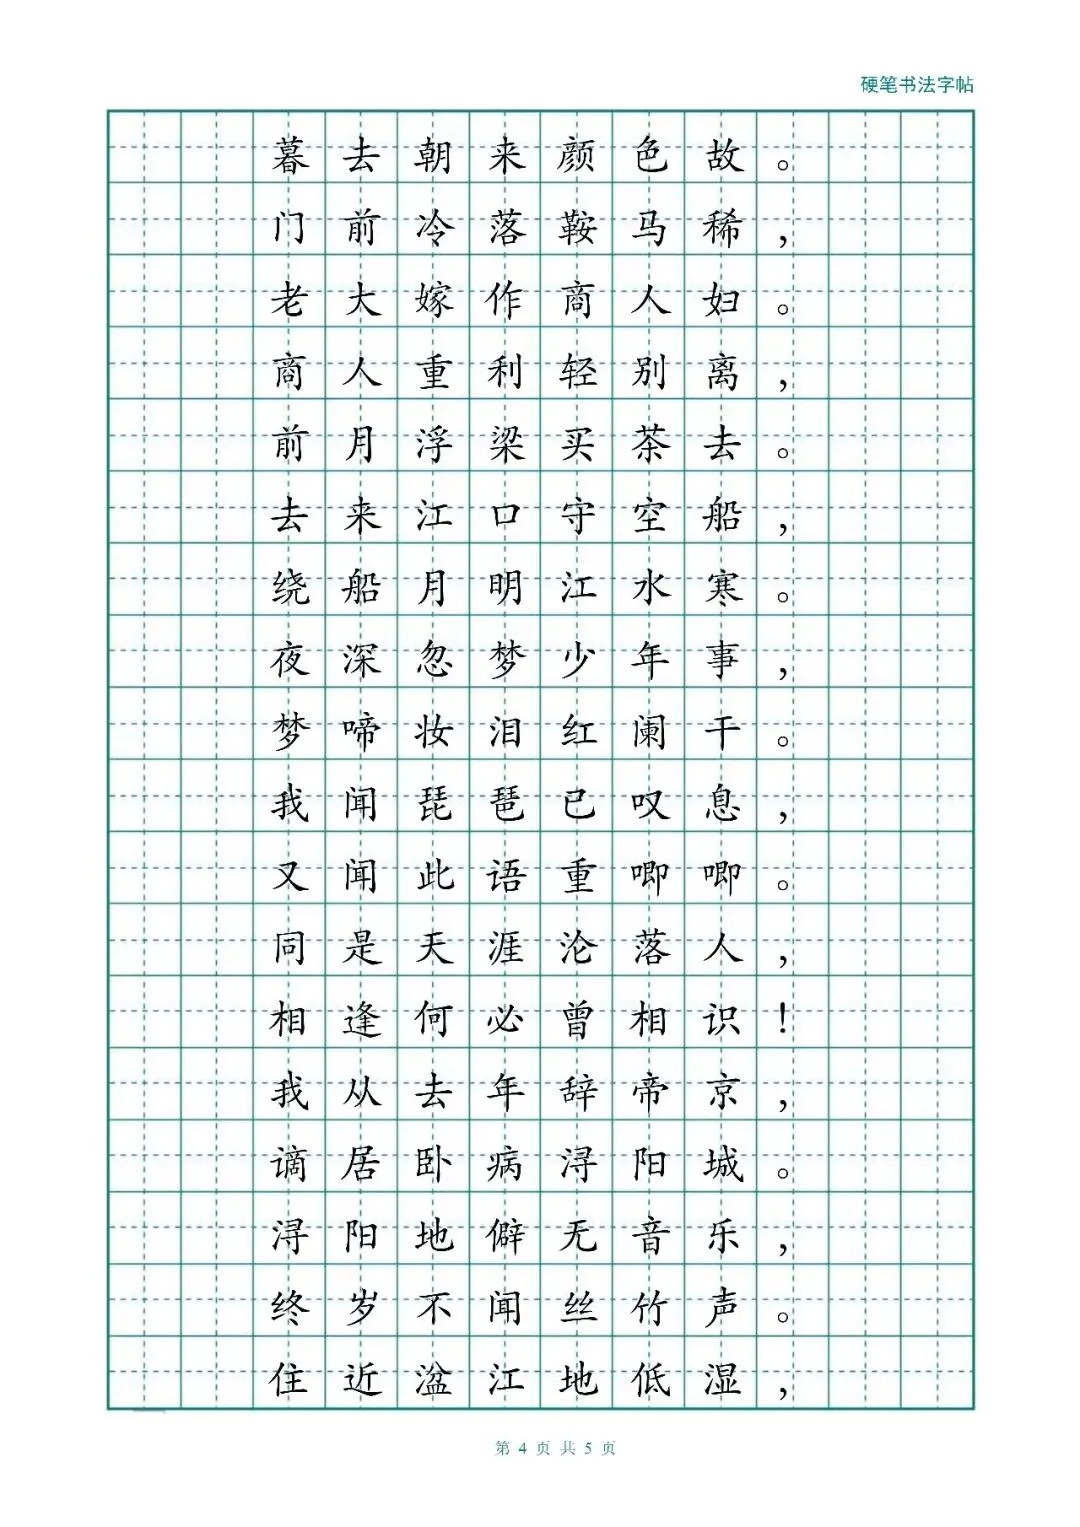 硬笔书法字帖
暮去朝来颜色故。
门前冷落鞍马稀，
老大嫁作商人妇。
商人重利轻别离，
前月浮梁买茶去。
去来江口守空船，
绕船月明江水寒。
夜深忽梦少年事，
梦啼妆泪红阑干。
我闻琵琶已叹息，
又闻此语重唧唧。
同是天涯沦落人，
相逢何必曾相识！
我从去年辞帝京，
谪居卧病浔阳城。
浔阳地僻无音乐，
终岁不闻丝竹声。
住近湓江地低湿，
第 4 页 共 5 页